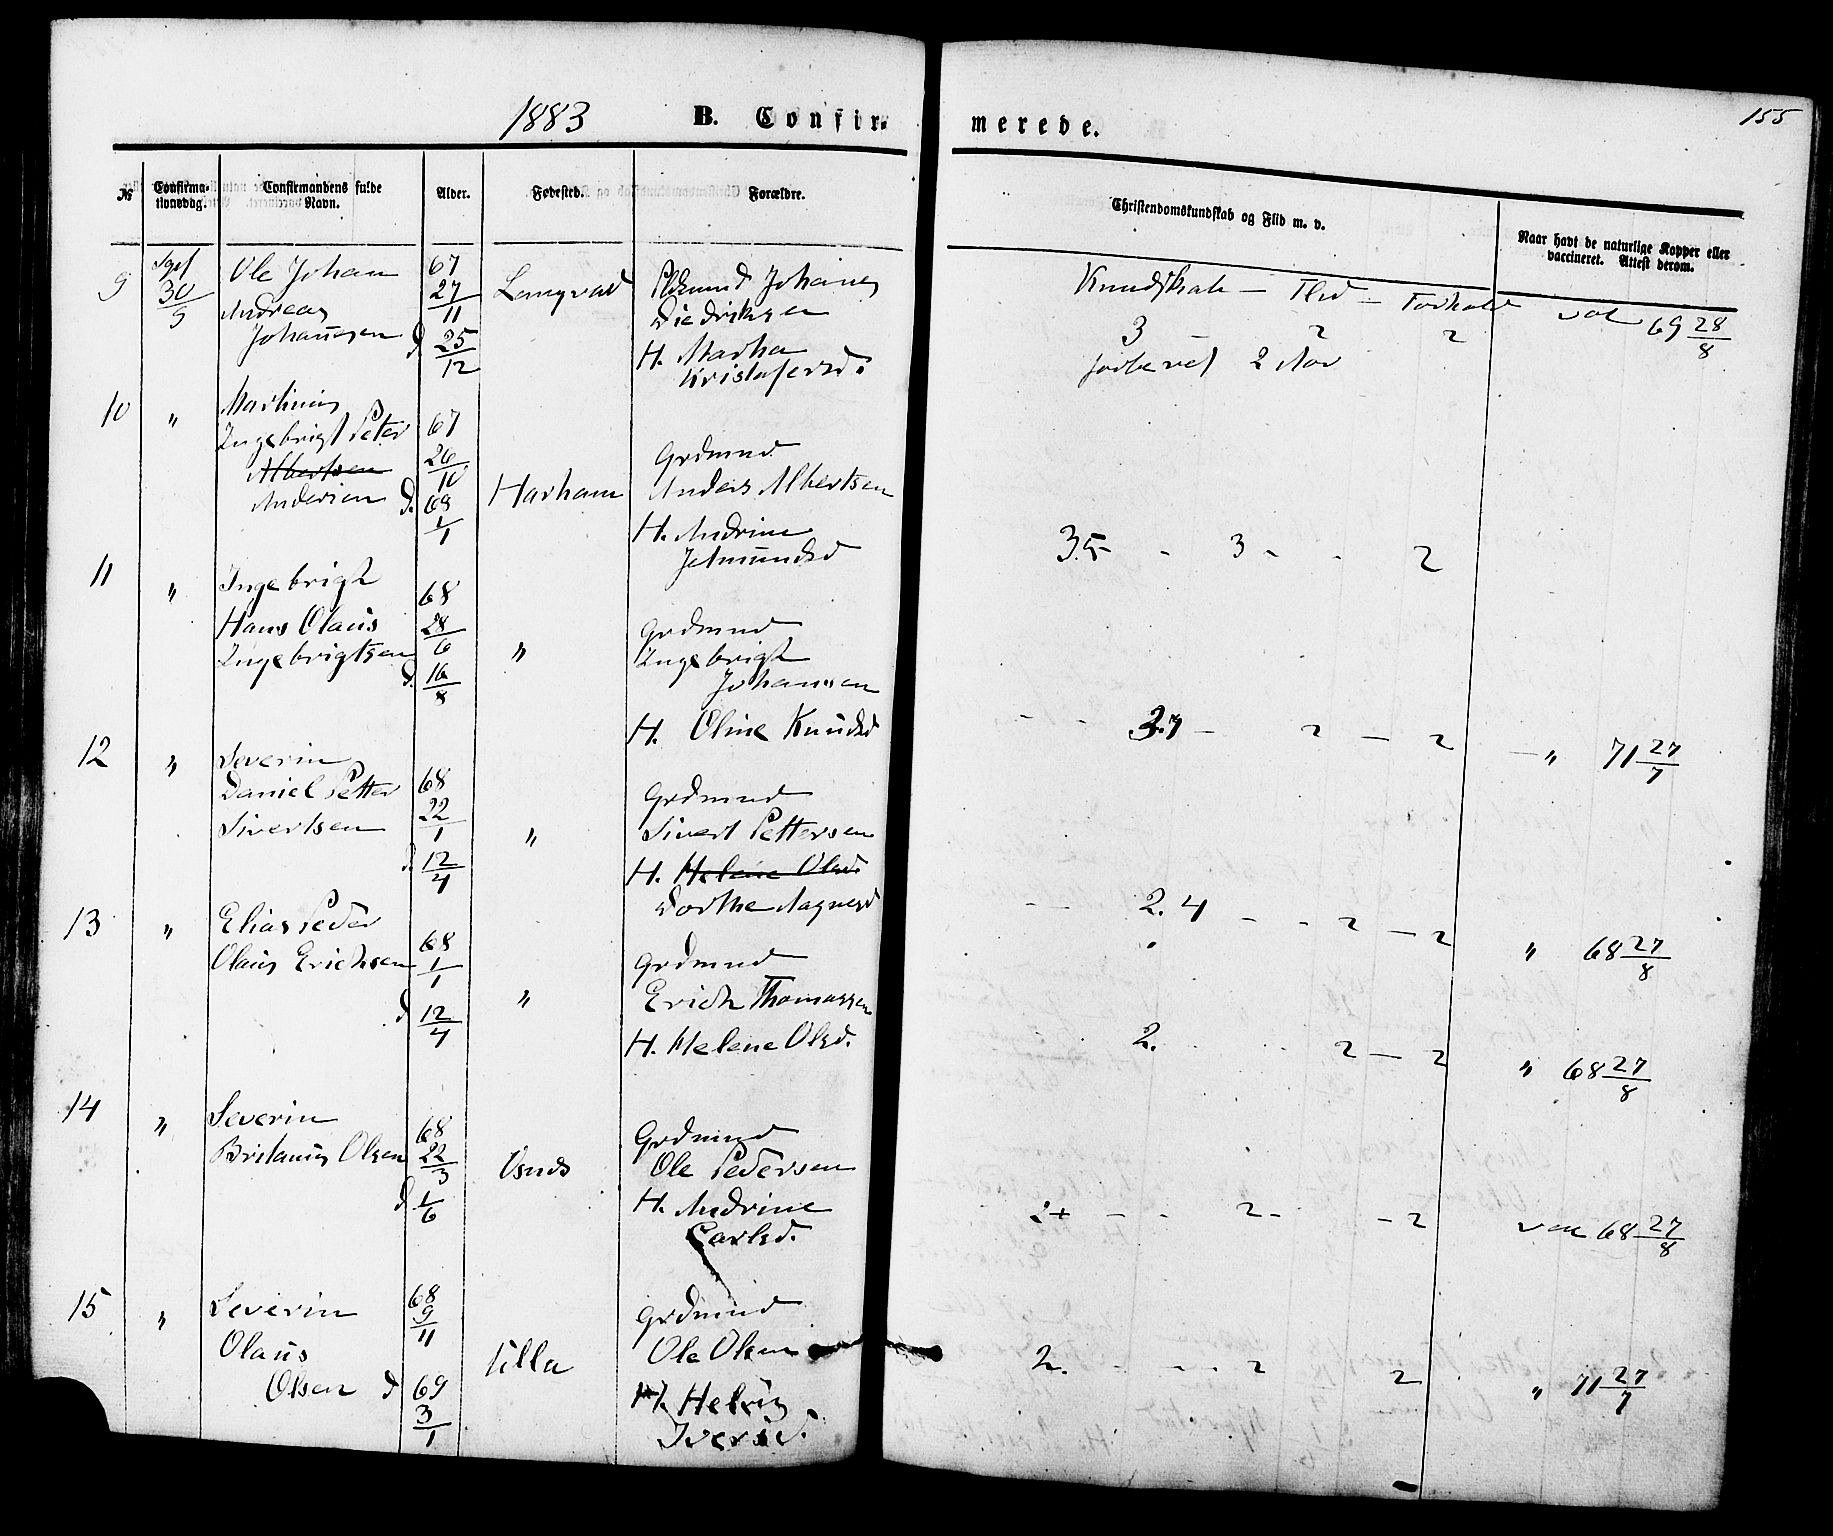 155
1883 B. Confirmerede.
№ Confirmationsdag. Confirmandens fulde Navn. Alder. Fødested. Forældre. Christendomskundskab og Flid m. v. Naar havt de naturlige Kopper eller vaccineret. Attest derom.
9 30/9 Ole Johan 67 Johanes Kundskab – Flid – Forhold
Andreas 27/11 Diedriksen 3 2 2 69 28/8
Johannesen d 25/12 H. Martha 2 Nov
Kristofersd.
10 " Martinus
Ingebrigt Peter 67
Albertsen 26/10 Grdmnd
Andersen d. 68 Harham Anders Albertsen
1/1 H. Andrine 3.5 - 3 - - 2
Jetmundsd
11 " Ingebrigt 68
Hans Olaus 28/6 Grdmnd
Ingebrigtsen " Ingebrigt
d. 16/8 Johansen
H. Oline Knudsd - - 2 - 2 - " 71 27/7
12 " Severin
Daniel Petter 68 Grdmnd
Sivertsen 22/1 " Sivert Pettersen
d. 12/4 H. Helene Olsd.
Dorthe Magnesd 2.4 - - 2 - 2 " 68 27/8
13 " Elias Peder 68
Olaus Erichsen 1/1 Grdmnd
" Erich Thomassen
d 12/4 H. Helene Olsd. 2. 2 - 2 " 68 27/8
14 " Severin 68 Grdmnd
Britanus Olsen 22/3 Ole Pedersen
d 1/6 H. Andrine 2+ - - 2 - - 2 vac 68 27/8
Carlsd.
15 " Severin 68 Grdmnd
Olaus 9/11 Ulla Ole Olsen 2. - - - 2 2 " 71 27/7
Olsen d 69 H. Helvig
3/1 Iversd.